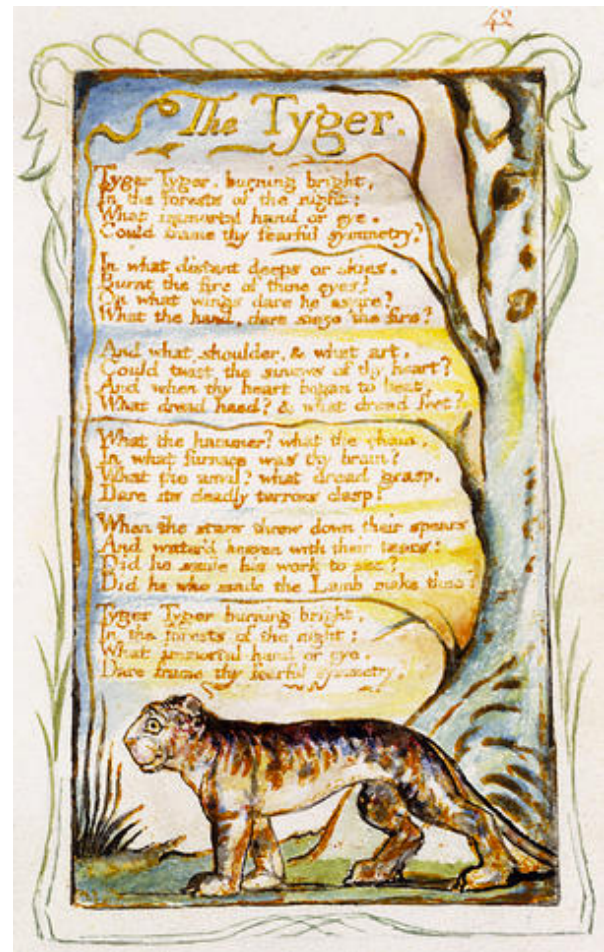 42
The Tyger.
Tyger Tyger, burning bright,
In the forests of the night:
What immortal hand or eye,
Could frame thy fearful symmetry?
In what distant deeps or skies,
Burnt the fire of thine eyes?
On what wings dare he aspire?
What the hand, dare sieze the fire?
And what shoulder, & what art,
Could twist the sinews of thy heart?
And when thy heart began to beat,
What dread hand? & what dread feet?
What the hammer? what the chain,
In what furnace was thy brain?
What the anvil? what dread grasp,
Dare its deadly terrors clasp!
When the stars threw down their spears
And water'd heaven with their tears:
Did he smile his work to see?
Did he who made the Lamb make thee?
Tyger Tyger burning bright,
In the forests of the night:
What immortal hand or eye,
Dare frame thy fearful symmetry?